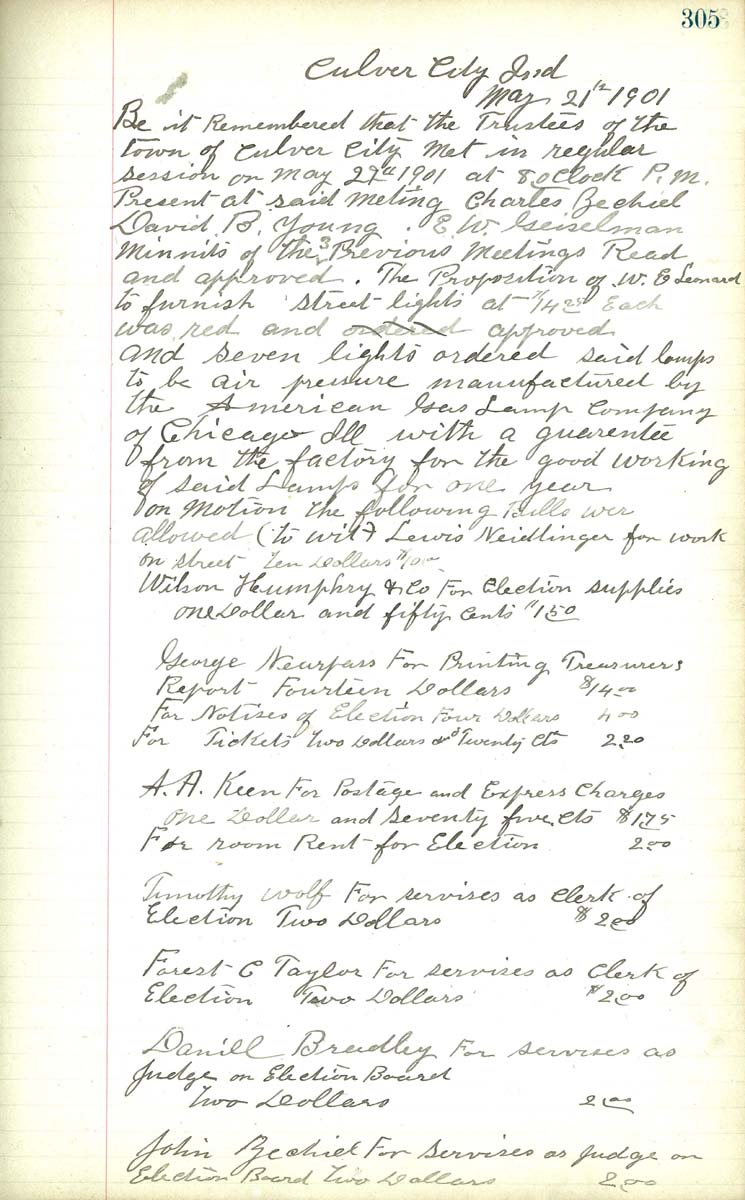 305
Culver City Ind
May 21st 1901
Be it Remembered that the Trustees of the
town of Culver City Met in regular
session on May 1901 at 8 oclock P.M.
Present at said Meting Charles Zechiel
David B. Young . E. W. Geiselman
Minnits of the 3 Previous Meetings Read
and approved . The Proposition of W. E Leonard
to furnish street lights at $14.25 Each
was red and ordered approved
and seven lights ordered said lamps
to be air pressure manufactured by
the American Gas Lamp Company
of Chicago Ill with a guarentee
from the factory for the good working
of said Lamps for one year
on Motion the following Bills wer
allowed (to wit) Lewis Neidlinger for work
on street Ten Dollars $10.00
Wilson Humphry & Co For Election supplies
one Dollar and fifty Cents $1.50
George Nearpass For Printing Treasurers
Report Fourteen Dollars $14.00
For Notises of Election Four Dollars 4.00
For Tickets Two Dollars & Twenty Cts 2.20
A. A. Keen For Postage and Express Charges
One Dollar and Seventy five Cts $1.75
For room Rent for Election 2.00
Timothy Wolf For servises as Clerk of
Election Two Dollars $2.00
Forest C Taylor For servises as Clerk of
Election Two Dollars $2.00
Danill Bradley For servises as
Judge on Election Board
Two Dollars 2.00
John Zechiel For servises as Judge on
Election Board Two Dollars 2.00